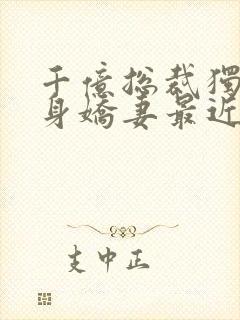 千億總裁獨
身嬌妻最近
支中正